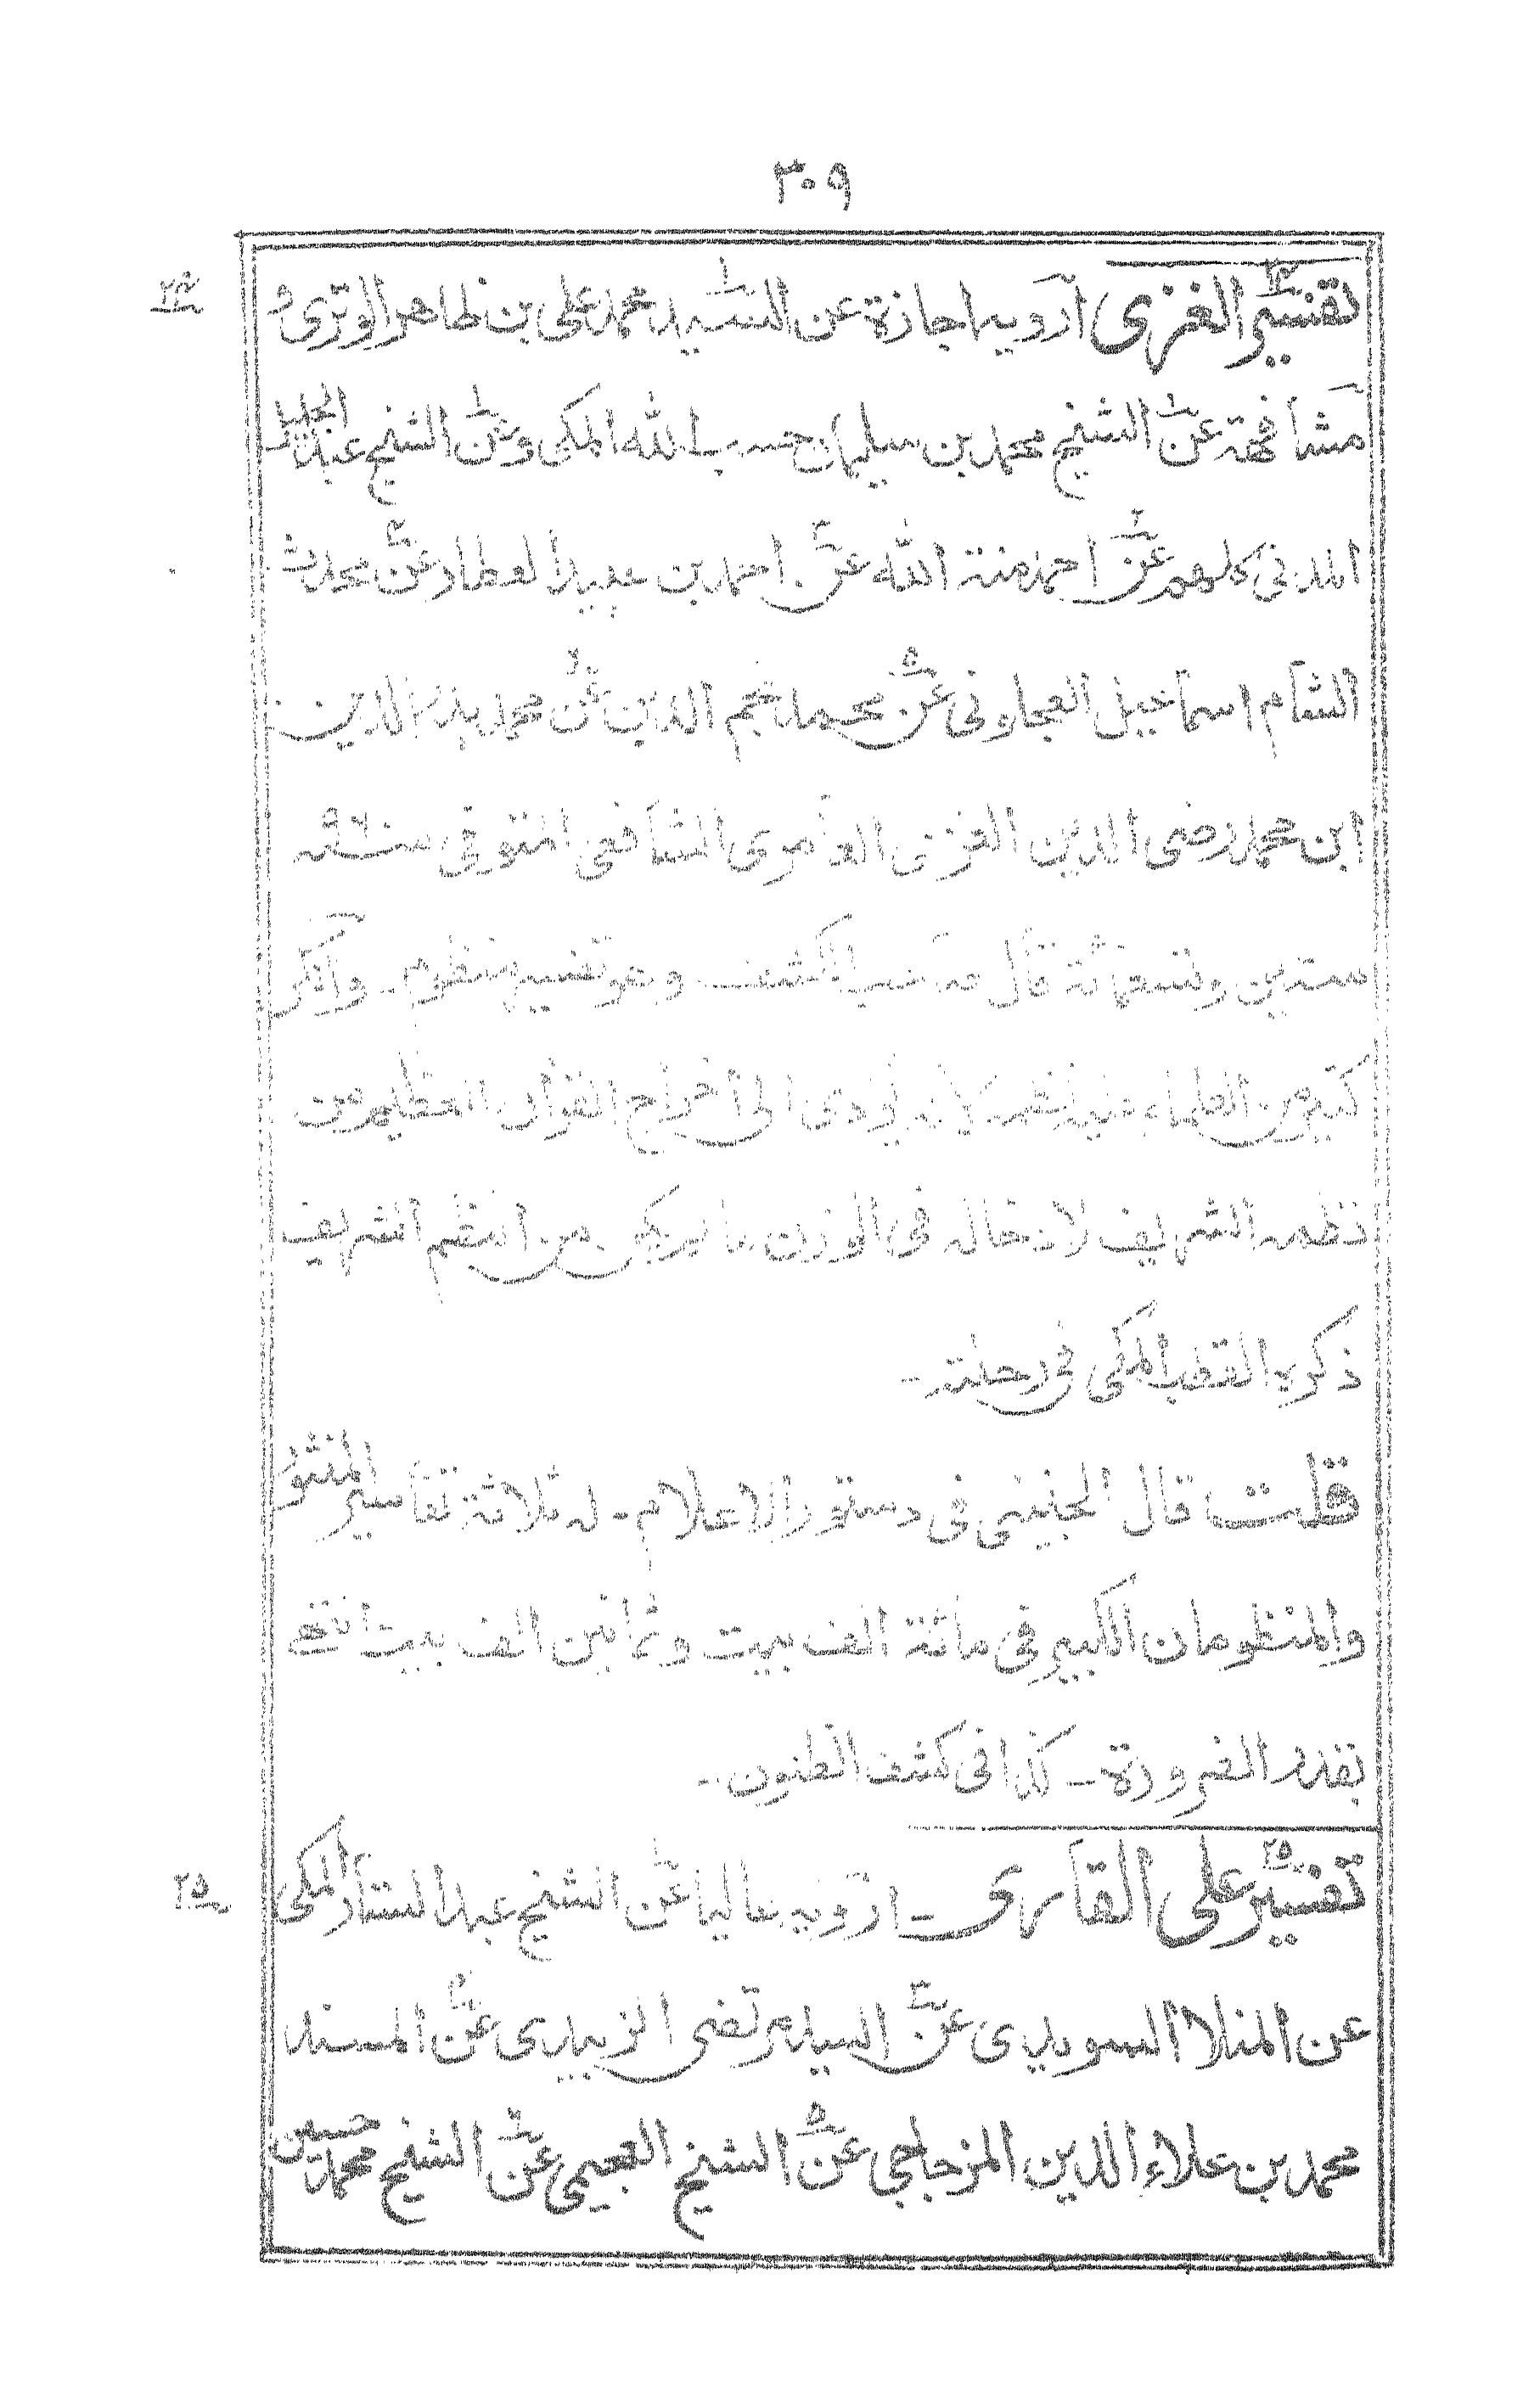 ٣٠٩
٢٤
تفسير الغزى آرويه اجازة عن السيد محمد على بن ظاهر الوترى و
مشافهة عن الشيخ محمد بن سليمان حسب الله المكى وعن الشيخ عبد الجليل
المدنى كلهم عن احمد منة الله عن احمد بن عبيد العطار عن محدث
الشام اسماعيل العجلونى عن محمد نجم الدين عن محمد بدر الدين
ابن محمد رضى الدين الغزى العامرى الشافعى المتوفى سنة ٩٦٠
ستين وتسعمائة قال صاحب الكشف وهو تفسير منظوم - وانكر
كثير من العلماء عليه نظمه لانه يؤدى الى اخراج القرأن العظيم من
نظمه الشريف لادخاله فى الوزن ما ليس من النظم الشريف
ذكره القطب المكى فى رحلته -
قلت قال الجنينى فى دستور الاعلام - له ثلاثة تفاسير المنثور
والمنظومان الكبير فى مائة الف بيت وثمانين الف بيت انتهى
بقدر الضرورة - كذا فى كشف الظنون -
٢٥
تفسير على القارى - ارويه عاليا عن الشيخ عبد الستار المكى
عن المنلا السويدى عن السيد مرتضى الزبيدى عن المسند
محمد بن علاء الدين المزجاجى عن الشيخ العجيمى عن الشيخ محمد حسين